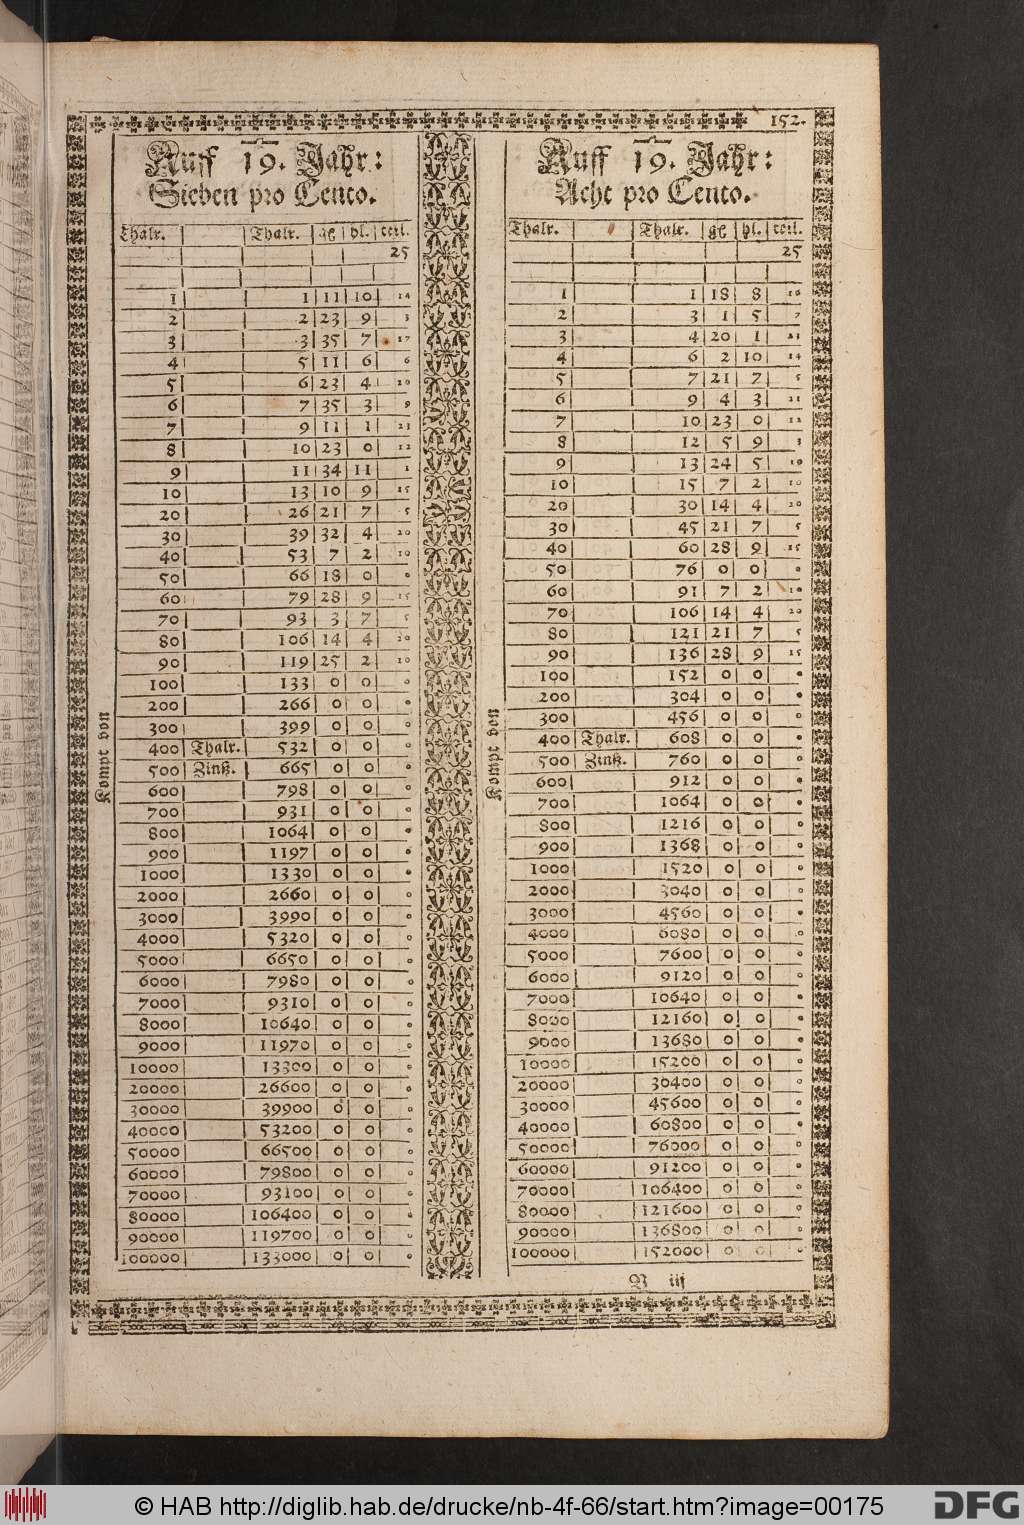 152.
Auff 19. Jahr:
Sieben pro Cento.
Thalr. Thalr. gl hl. teil.
25
1 1 11 10 14
2 2 23 9 3
3 3 35 7 17
4 5 11 6 6
5 6 23 4 20
6 7 35 3 9
7 9 11 1 23
8 10 23 0 12
9 11 34 11 1
10 13 10 9 15
20 26 21 7 5
30 39 32 4 20
40 53 7 2 10
50 66 18 0 0
60 79 28 9 15
70 93 3 7 5
80 106 14 4 20
90 119 25 2 10
100 133 0 0 0
200 266 0 0 0
300 399 0 0 0
400 Thalr. 532 0 0 0
500 Zinß. 665 0 0 0
600 798 0 0 0
700 931 0 0 0
800 1064 0 0 0
900 1197 0 0 0
1000 1330 0 0 0
2000 2660 0 0 0
3000 3990 0 0 0
4000 5320 0 0 0
5000 6650 0 0 0
6000 7980 0 0 0
7000 9310 0 0 0
8000 10640 0 0 0
9000 11970 0 0 0
10000 13300 0 0 0
20000 26600 0 0 0
30000 39900 0 0 0
40000 53200 0 0 0
50000 66500 0 0 0
60000 79800 0 0 0
70000 93100 0 0 0
80000 106400 0 0 0
90000 119700 0 0 0
100000 133000 0 0 0
Kompt von
Auff 19. Jahr:
Acht pro Cento.
Thalr. Thalr. gl hl. teil.
25
1 1 18 8 16
2 3 1 5 7
3 4 20 1 23
4 6 2 10 14
5 7 21 7 5
6 9 4 3 21
7 10 23 0 12
8 12 5 9 3
9 13 24 5 19
10 15 7 2 10
20 30 14 4 20
30 45 21 7 5
40 60 28 9 15
50 76 0 0 0
60 91 7 2 10
70 106 14 4 20
80 121 21 7 5
90 136 28 9 15
100 152 0 0 0
200 304 0 0 0
300 456 0 0 0
400 Thalr. 608 0 0 0
500 Zinß. 760 0 0 0
600 912 0 0 0
700 1064 0 0 0
800 1216 0 0 0
900 1368 0 0 0
1000 1520 0 0 0
2000 3040 0 0 0
3000 4560 0 0 0
4000 6080 0 0 0
5000 7600 0 0 0
6000 9120 0 0 0
7000 10640 0 0 0
8000 12160 0 0 0
9000 13680 0 0 0
10000 15200 0 0 0
20000 30400 0 0 0
30000 45600 0 0 0
40000 60800 0 0 0
50000 76000 0 0 0
60000 91200 0 0 0
70000 106400 0 0 0
80000 121600 0 0 0
90000 136800 0 0 0
100000 152000 0 0 0
Kompt von
iij
© HAB http://diglib.hab.de/drucke/nb-4f-66/start.htm?image=00175
DFG